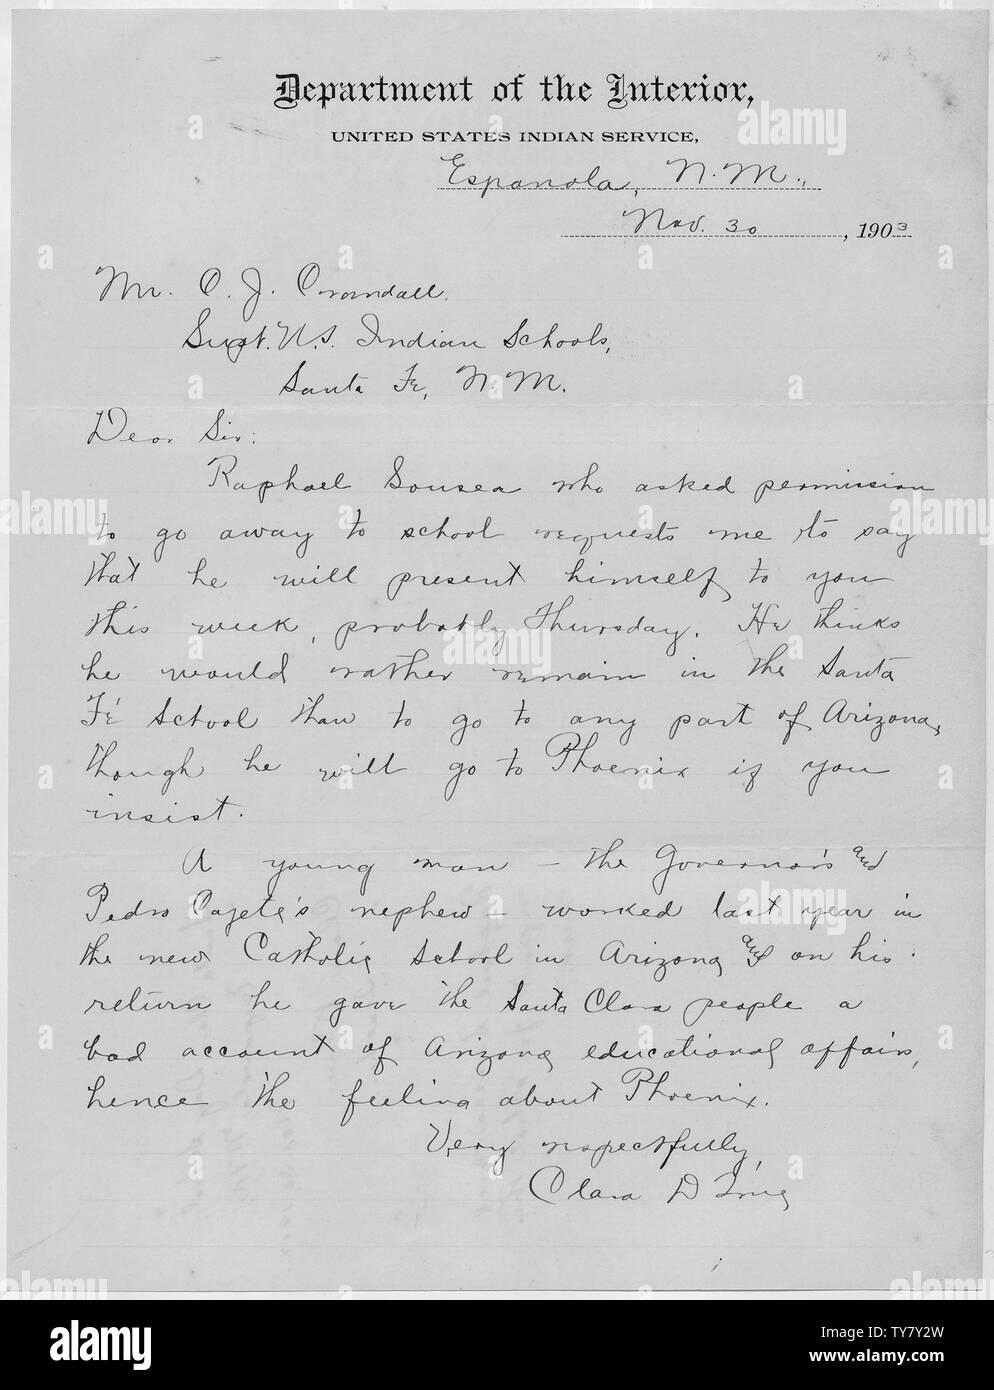 Department of the Interior,
UNITED STATES INDIAN SERVICE,
Espanola, N.M.,
Nov. 30, 1903
Mr. C. J. Crandall,
Supt. U.S. Indian Schools,
Santa Fe, N.M.
Dear Sir:
Raphael Sousea who asked permission
to go away to school requests me to say
that he will present himself to you
this week, probably Thursday. He thinks
he would rather remain in the Santa
Fé School than to go to any part of Arizona,
though he will go to Phoenix if you
insist.
A young man – the Governor's and
Pedro Cajete's nephew – worked last year in
the new Catholic School in Arizona and on his
return he gave the Santa Clara people a
bad account of Arizona educational affairs,
hence the feeling about Phoenix.
Very respectfully,
Clara D True
alamy
alamy
alamy
alamy
alamy
alamy
alamy
alamy
alamy
TY7Y2W
www.alamy.com